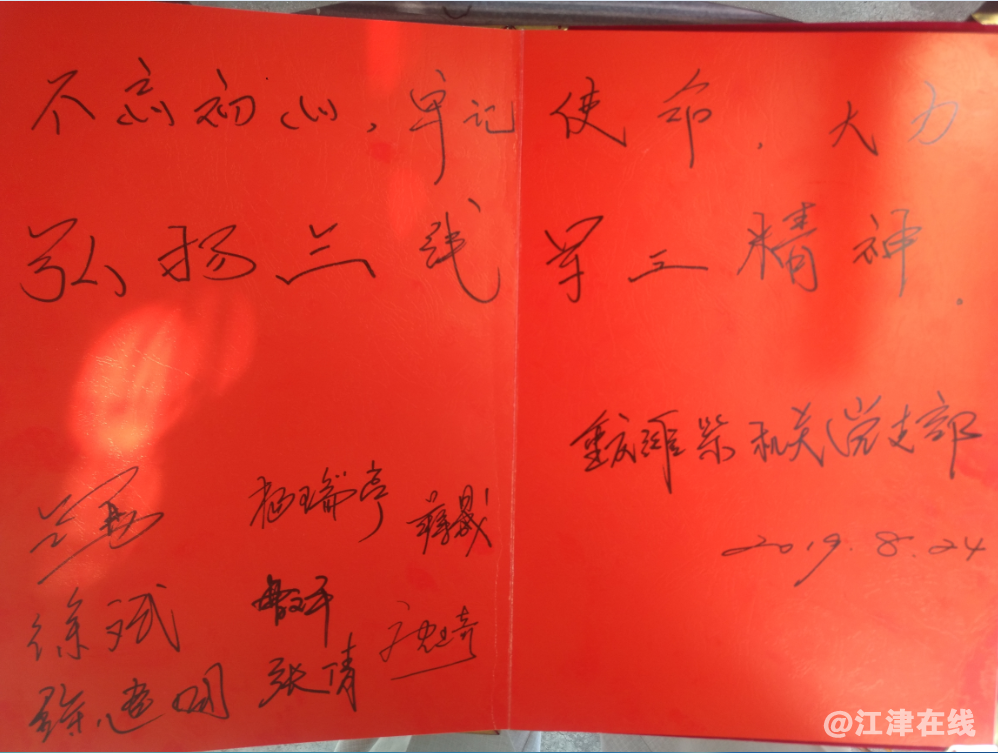 不忘初心,牢记使命,大力
弘扬三线军工精神.
重庆潍柴机关党支部
2019.8.24
杨瑞亭
徐斌
张倩
@江津在线